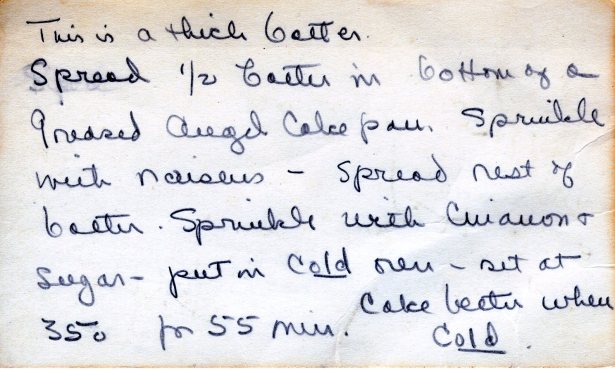 This is a thick batter.
Spread 1/2 batter in bottom of a
greased Angel Cake pan. Sprinkle
with raisens - Spread rest of
batter. Sprinkle with Cinamon &
Sugar - put in Cold oven - set at
350 for 55 min. Cake better when
Cold.